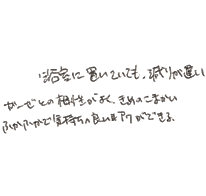 浴室に置いていても、減りが遅い
ガーゼとの相性がよく、きめのこまかい
ふかふかで気持ちの良いアワができる。